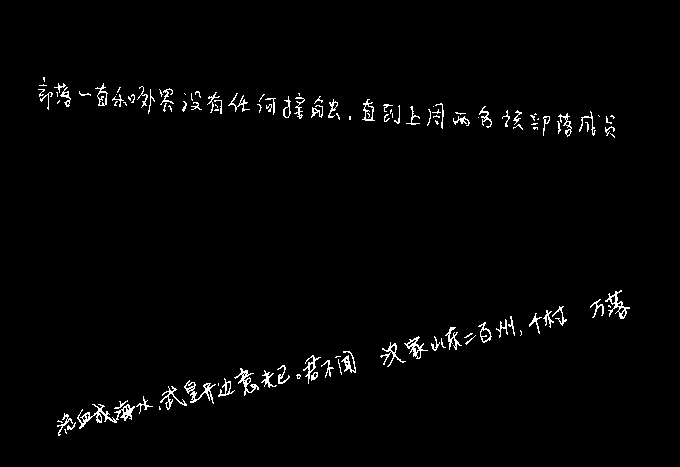 部落一直和外界没有任何接触,直到上周两名该部落成员
流血成海水,武皇开边意未已。君不闻 汉家山东二百州,千村 万落